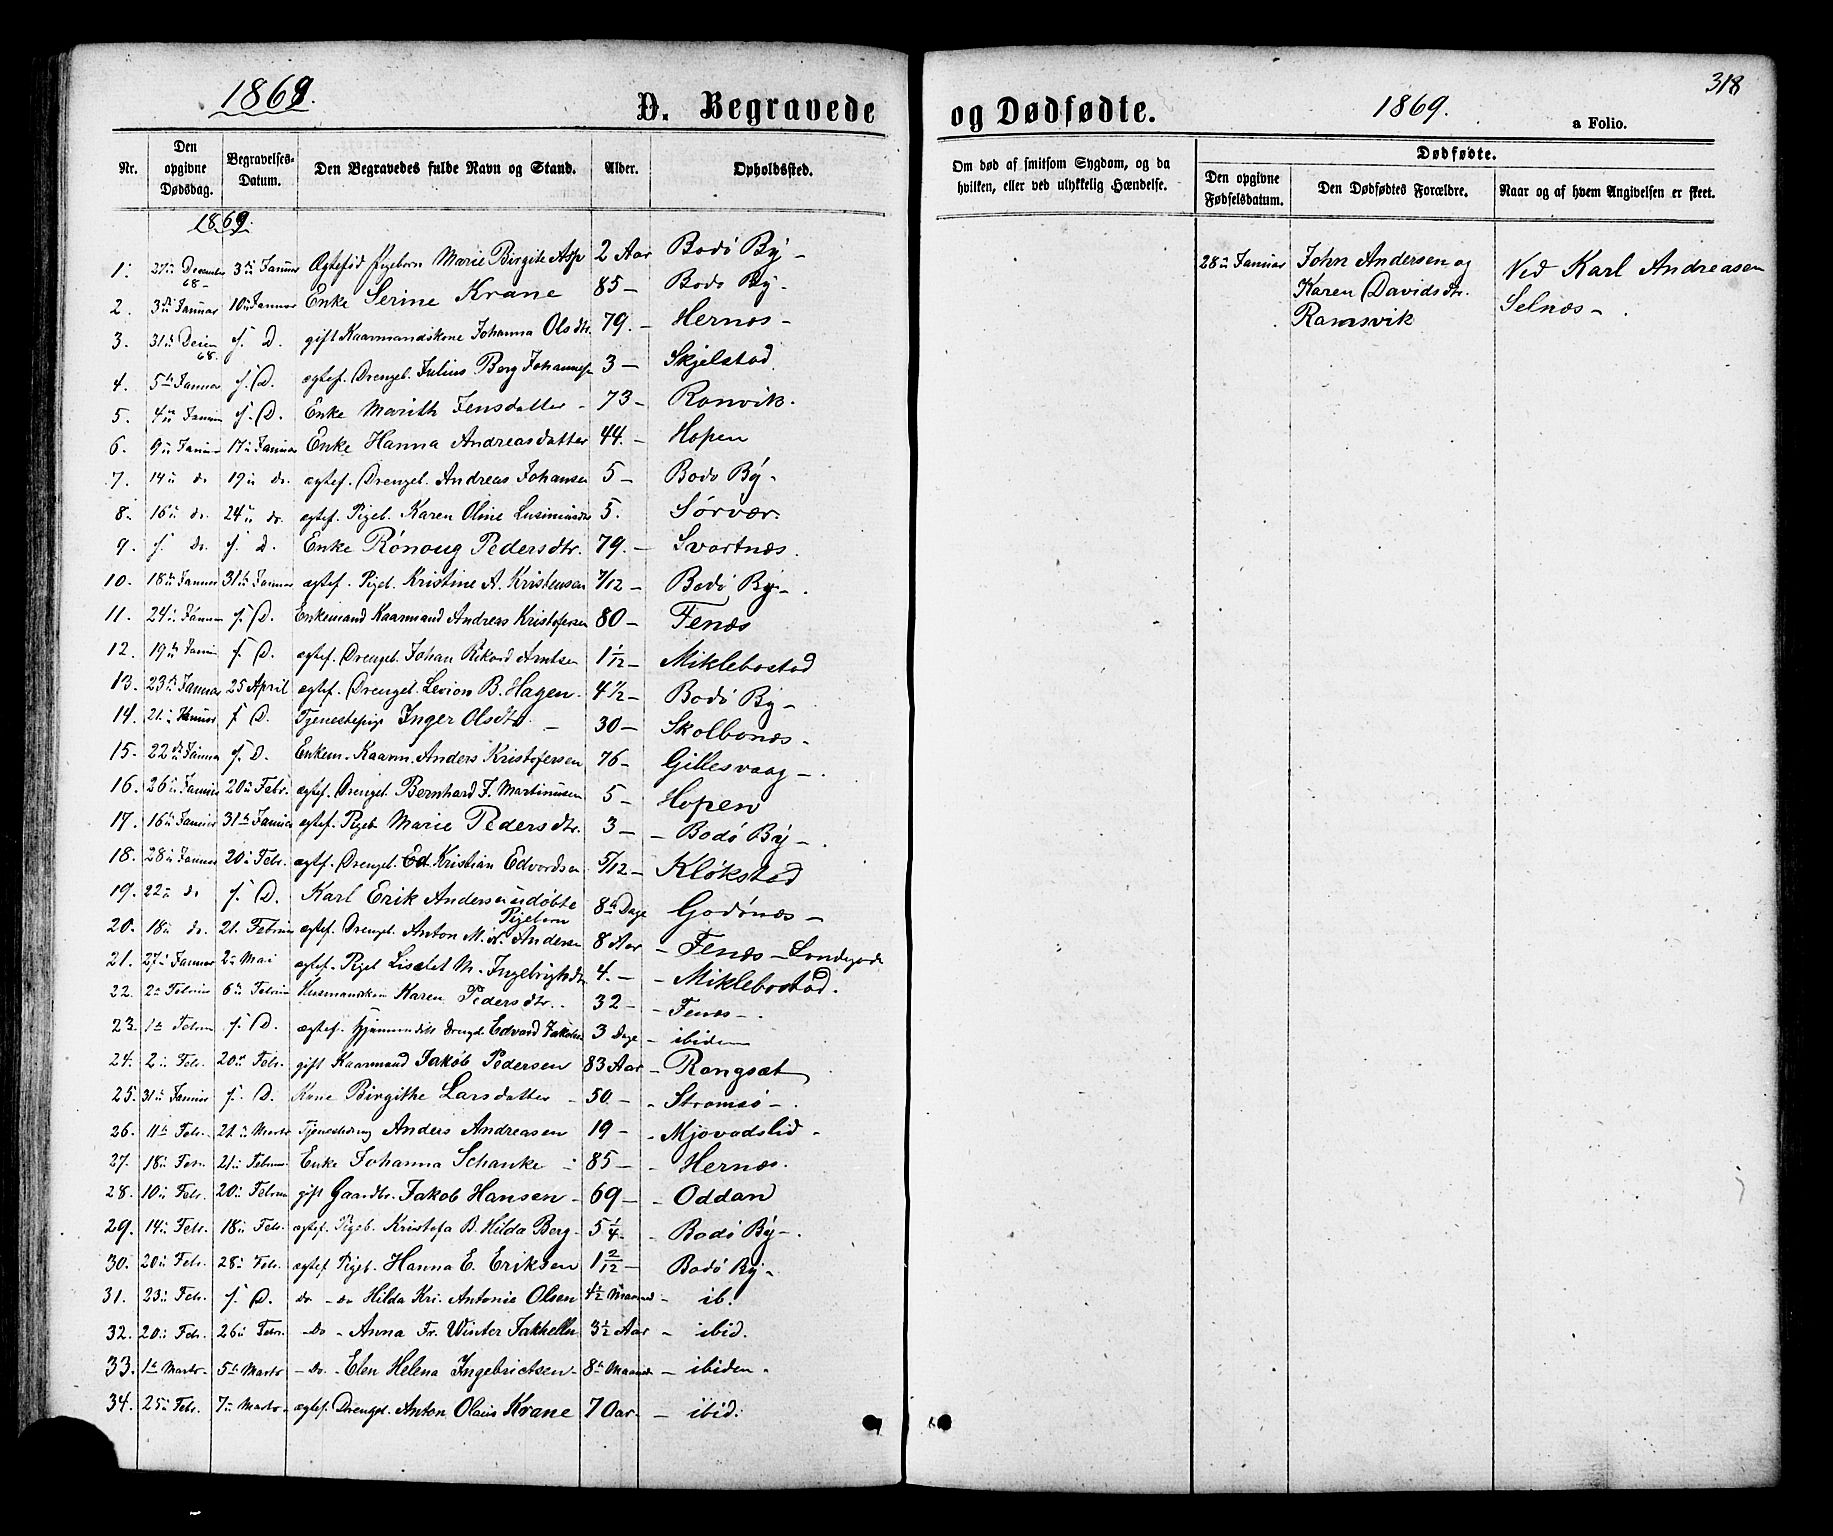 1869.
D. Begravede
Nr.
Den opgivne Dødsdag.
Begravelses-Datum.
Den Begravedes fulde Navn og Stand.
Alder.
Opholdssted.
1869.
1. December 68 3 Januar Ægtefød Pigebarn Marie Birgite Asp 2 Aar Bodø By -
2. 3 Januar 10 Januar Enke Serine Krane 85 - Bodø By -
3. 31 68 f. D. gift Kaarmandskone Johanna Olsdtr. 79. - Hernæs -
4. 5 Januar f. D. ægtef. Drengeb. Julius Berg 3 - Skjelstad.
5. 4 Januar f. D. Enke Marith Jensdatter - 73 - Rønvik.
6. 9 Januar 17 Januar Enke Hanna Andreasdatter 44. - Hopen
7. 14 do 19 do. ægtef. Drengeb. Andreas Johansen 5 - Bodø By -
8. 16 do. 24 do. ægtef. Pigeb. Karen Oline 5. Sørvær.
9. f. do. f. D. Enke Rønoug Pedersdtr. 79. - Svartnæs.
10. 18 Januar 31 Januar ægtef. Pigeb. Kristine A. Kristensen 7/12 - Bodø By -
11. 24 Januar f. D. Enkemand Kaarmand Andreas Kristofersen 80 - Fenæs
12. 19 Januar f. D. ægtef. Drengeb. Johan Rikard Arntsen 1 1/12 - Miklebostad
13. 23 Januar 25 April ægtef. Drengeb. B. Hagen. 4 1/2 - Bodø By -
14. 21 Januar f D. Tjenestepige Inger Olsdtr. - 30 - Skolbones -
15. 22 Januar f. D. Enkem. Kaarm. Anders Kristofersen 76 - Gillesvaag -
16. 26 Januar 20 Febr. ægtef. Drengeb. Bernhard J. Martinusen 5 - Hopen
17. 16 Januar 31 Januar ægtef. Pigeb Marie Pedersdtr. 3 - - Bodø By -
18. 28 Januar 20 Febr. ægtf. Drengeb. Ed. Kristian Edvardsen 5/12 - Kløkstad
19. 22 do f. D. Karl Erik Andersen udøbte Pigebarn 8 Dage Godønæs -
20. 18 do. 21. Februar ægtef. Drengeb. Anton M. N. Andersen 8 Aar - Fenæs - Landegode
21. 27 Januar 2 Mai ægtef. Pigeb Lisabet M. Ingebrigtsdtr 4. - - Miklebostad.
22. 2 Februar 6 Februar Husmandskon Karen Pedersdtr. 32 - - Fenæs -
23. 1 Februar f. D. ægtef. hjemmedøbt Drengeb Edvard Jakobsen 3 Dage - ibidem
24. 2 Febr. 20 Febr. gift Kaarmand Jakob Pedersen 83 Aar - Rangsæt
25. 31 Januar f. D. Kone Birgithe Larsdatter - 50. - - Strømsø -
26. 11 Febr. 21 Marts Tjenestedreng Anders Andreasen 19 - - Mjovadslid -
27. 18 Febr. 21 Februar Enke Johanna Schanke - 85 - - Hernæs.
28. 10 Febr. 20 Februar gift Gaardbr. Jakob Hansen - 69 - - Oddan
29. 14 Febr. 18 Febr. ægtef. Pigeb. Kristofa B. Hilda Berg - 5 1/4 - - Bodø By -
30. 20 Febr. 28 Febr. ægtef Pigeb. Hanna E. Eriksen 1 2/12 - Bodø By -
31. 23 Febr. f. D. do - do Hilda Kri. Antonie Olsen 4 1/2 Maaned - ib.
32. 20 Febr. 26 Febr. - Do - Anna Fr. Winter Jakhelln 3 1/2 Aar - ibid.
33. 1 Marts 5 Marts - Do - Elen Helena Ingebrictsen - 8 Maaned - ibidem -
34. 25 Febr. 7 Marts ægtef. Drengeb. Anton Olaus Krane 7 Aar. - ibid.
og Dødfødte.
1869.
318
a Folio.
Om død af smitsom Sygdom, og da
hvilken, eller ved ulykkelig Hændelse.
Dødfødte.
Den opgivne Fødselsdatum.
Den Dødfødtes Forældre.
Naar og af hvem Angivelsen er skeet.
28 Januar John Andersen og Ved Karl Andreasen
Karen Davidsdtr. Selnæs -
Ramsvik